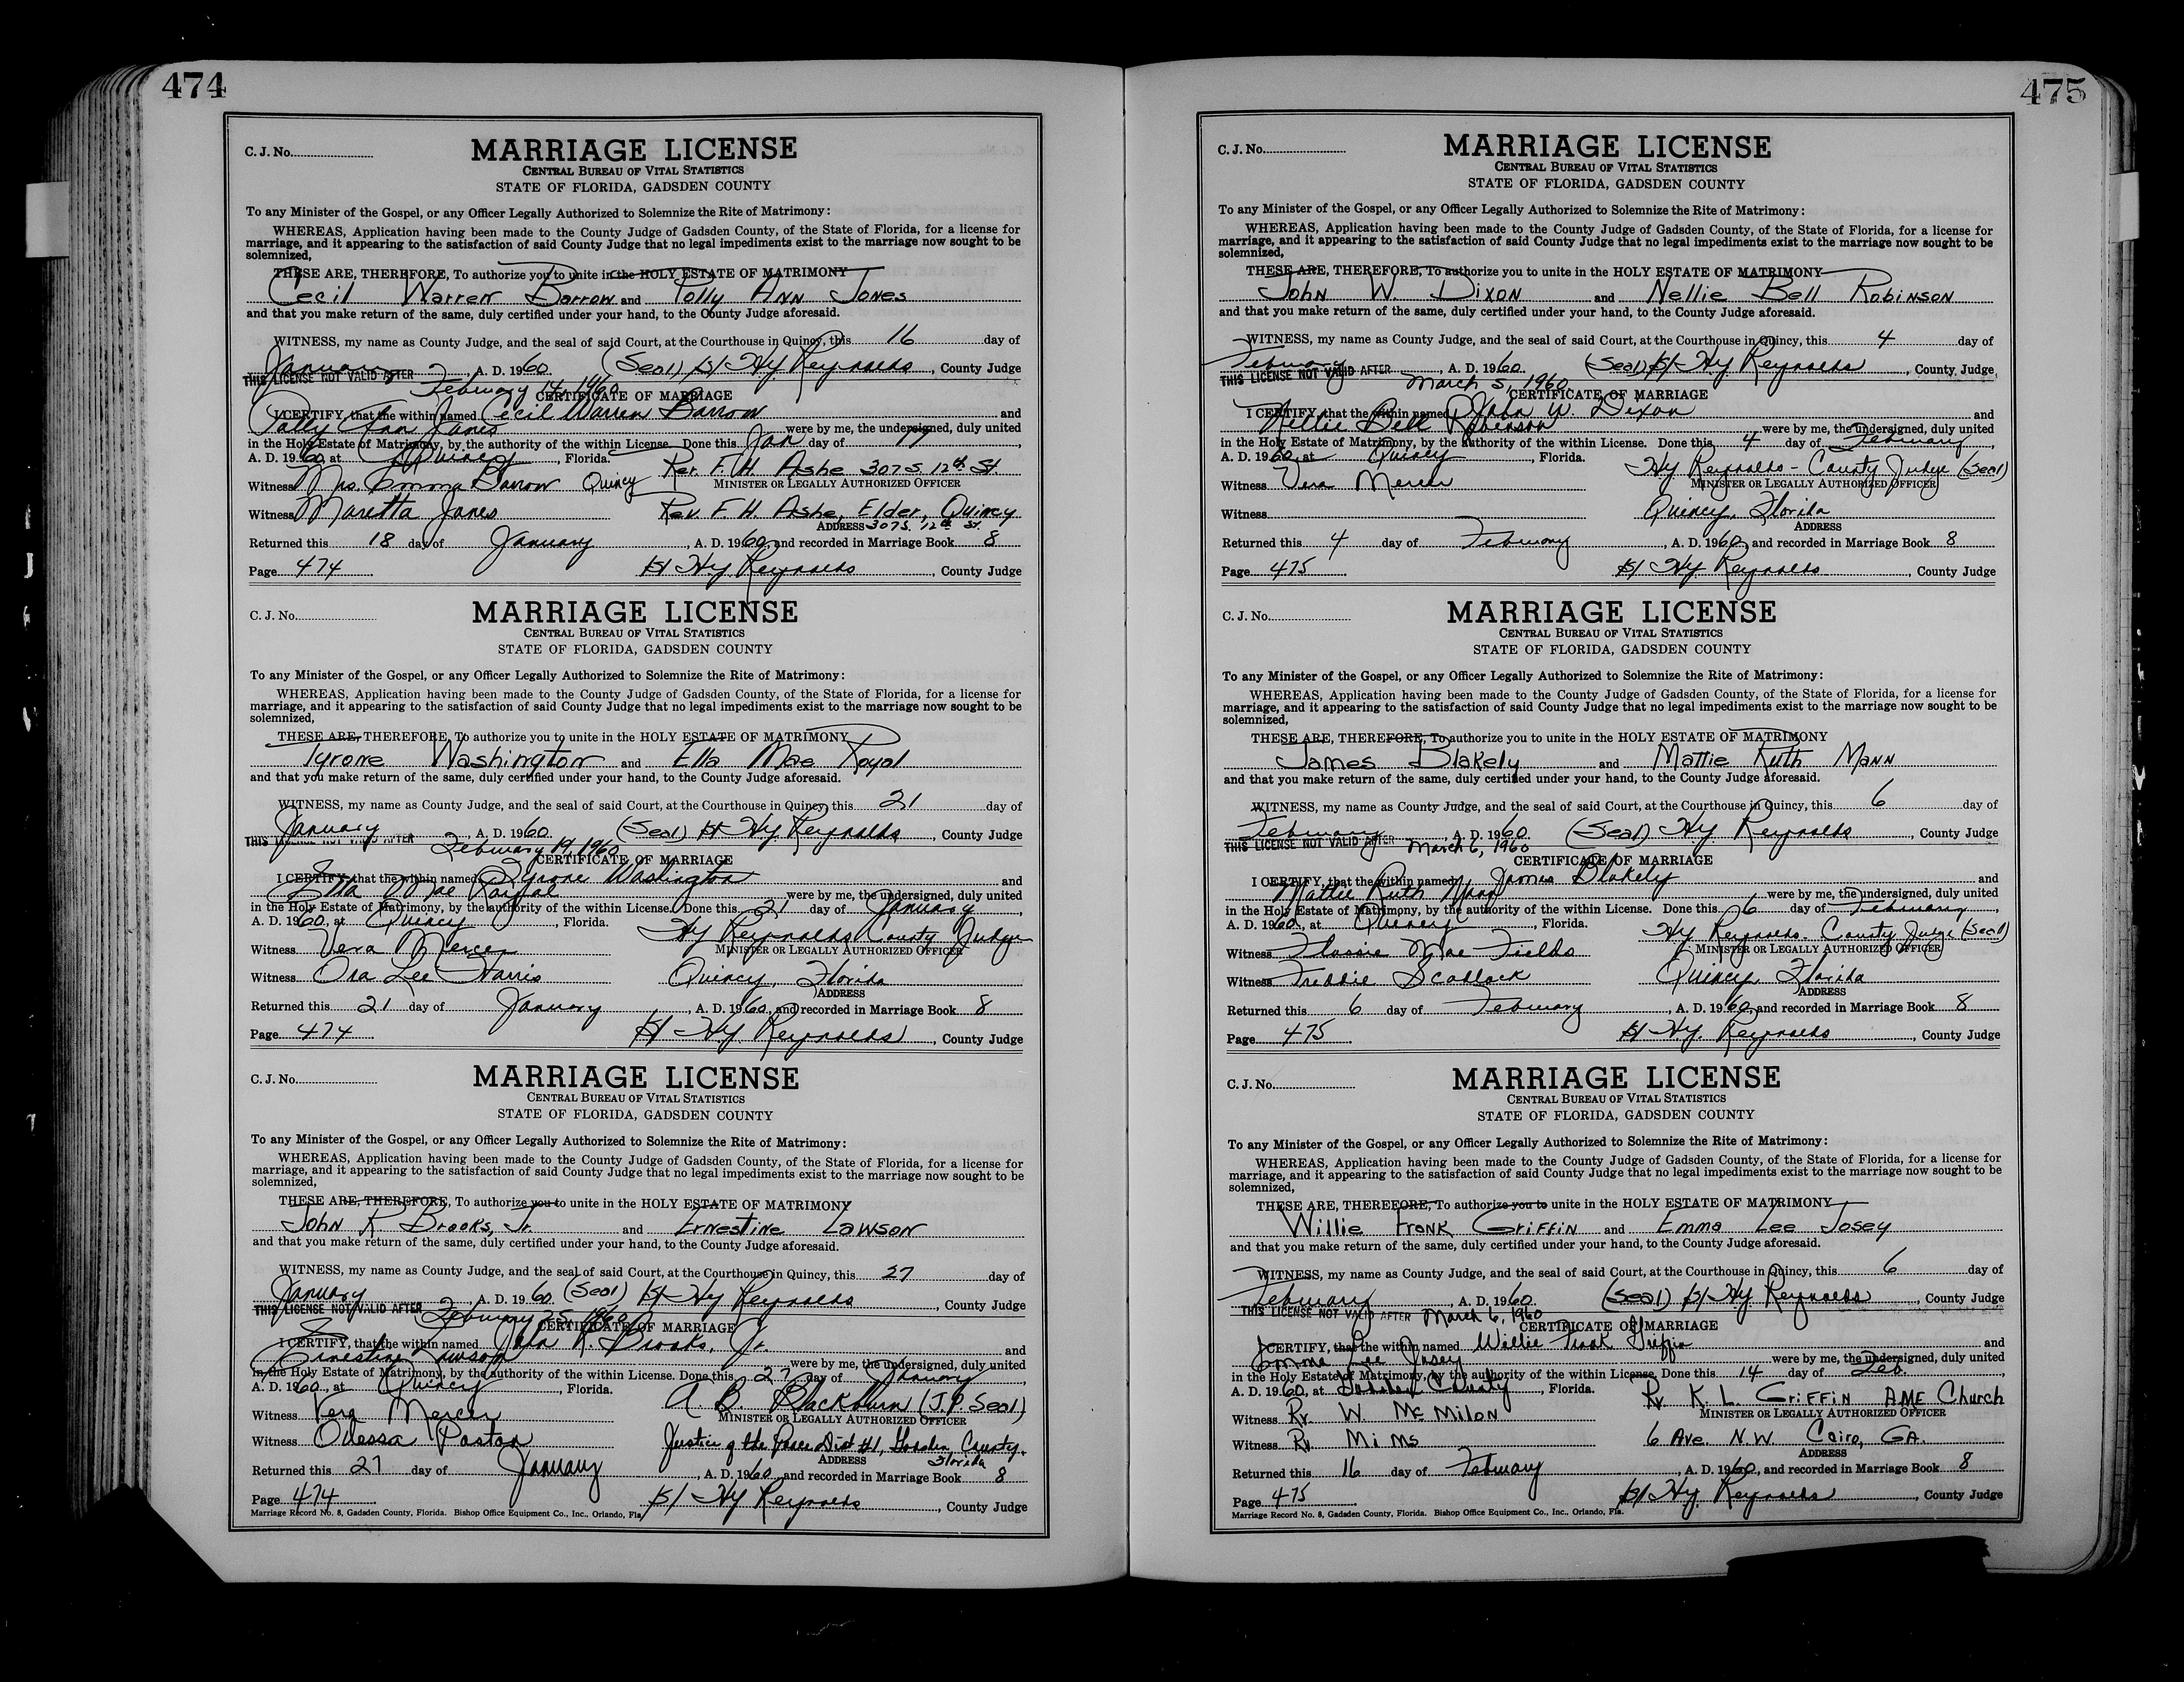 474
C. J. No.
MARRIAGE LICENSE
CENTRAL BUREAU OF VITAL STATISTICS
STATE OF FLORIDA, GADSDEN COUNTY
To any Minister of the Gospel, or any Officer Legally Authorized to Solemnize the Rite of Matrimony:
WHEREAS, Application having been made to the County Judge of Gadsden County, of the State of Florida, for a license for
marriage, and it appearing to the satisfaction of said County Judge that no legal impediments exist to the marriage now sought to be
solemnized,
THESE ARE, THEREFORE, To authorize you to unite in the HOLY ESTATE OF MATRIMONY
Cecil Warren Barrow and Polly Ann Jones
and that you make return of the same, duly certified under your hand, to the County Judge aforesaid.
WITNESS, my name as County Judge, and the seal of said Court, at the Courthouse in Quincy, this 16 day of
January, A. D. 1960. (Seal) /s/ Hy Reynolds, County Judge
THIS LICENSE NOT VALID AFTER February 14, 1960
CERTIFICATE OF MARRIAGE
I CERTIFY, that the within named Cecil Warren Barrow and
Polly Ann Jones were by me, the undersigned, duly united
in the Holy Estate of Matrimony, by the authority of the within License. Done this Jan day of 17,
A. D. 1960, at Quincy, Florida. Rev. F. H. Ashe 307 S. 12th St.
Witness Mrs. Emma Barrow Quincy MINISTER OR LEGALLY AUTHORIZED OFFICER
Witness Maretta Jones Rev. F. H. Ashe, Elder, Quincy
ADDRESS 307 S. 12th St.
Returned this 18 day of January, A. D. 1960, and recorded in Marriage Book 8
Page 474 /s/ Hy Reynolds, County Judge
C. J. No.
MARRIAGE LICENSE
CENTRAL BUREAU OF VITAL STATISTICS
STATE OF FLORIDA, GADSDEN COUNTY
To any Minister of the Gospel, or any Officer Legally Authorized to Solemnize the Rite of Matrimony:
WHEREAS, Application having been made to the County Judge of Gadsden County, of the State of Florida, for a license for
marriage, and it appearing to the satisfaction of said County Judge that no legal impediments exist to the marriage now sought to be
solemnized,
THESE ARE, THEREFORE, To authorize you to unite in the HOLY ESTATE OF MATRIMONY
Tyrone Washington and Ella Mae Royal
and that you make return of the same, duly certified under your hand, to the County Judge aforesaid.
WITNESS, my name as County Judge, and the seal of said Court, at the Courthouse in Quincy, this 21 day of
January, A. D. 1960. (Seal) /s/ Hy Reynolds, County Judge
THIS LICENSE NOT VALID AFTER February 19, 1960
CERTIFICATE OF MARRIAGE
I CERTIFY, that the within named Tyrone Washington and
Ella Mae Royal were by me, the undersigned, duly united
in the Holy Estate of Matrimony, by the authority of the within License. Done this 21 day of January,
A. D. 1960, at Quincy, Florida. Hy Reynolds County Judge
Witness Vera Mercer MINISTER OR LEGALLY AUTHORIZED OFFICER
Witness Ora Lee Harris Quincy, Florida
ADDRESS
Returned this 21 day of January, A. D. 1960, and recorded in Marriage Book 8
Page 474 /s/ Hy Reynolds, County Judge
C. J. No.
MARRIAGE LICENSE
CENTRAL BUREAU OF VITAL STATISTICS
STATE OF FLORIDA, GADSDEN COUNTY
To any Minister of the Gospel, or any Officer Legally Authorized to Solemnize the Rite of Matrimony:
WHEREAS, Application having been made to the County Judge of Gadsden County, of the State of Florida, for a license for
marriage, and it appearing to the satisfaction of said County Judge that no legal impediments exist to the marriage now sought to be
solemnized,
THESE ARE, THEREFORE, To authorize you to unite in the HOLY ESTATE OF MATRIMONY
John R. Brooks, Jr. and Ernestine Lawson
and that you make return of the same, duly certified under your hand, to the County Judge aforesaid.
WITNESS, my name as County Judge, and the seal of said Court, at the Courthouse in Quincy, this 27 day of
January, A. D. 1960. (Seal) /s/ Hy Reynolds, County Judge
THIS LICENSE NOT VALID AFTER February 25, 1960
CERTIFICATE OF MARRIAGE
I CERTIFY, that the within named John R. Brooks, Jr. and
Ernestine Lawson were by me, the undersigned, duly united
in the Holy Estate of Matrimony, by the authority of the within License. Done this 27 day of January,
A. D. 1960, at Quincy, Florida. A. B. Blackburn (J.P. Seal)
Witness Vera Mercer MINISTER OR LEGALLY AUTHORIZED OFFICER
Witness Odessa Paston Justice of the Peace Dist #1, Gadsden, County.
ADDRESS Florida
Returned this 27 day of January, A. D. 1960, and recorded in Marriage Book 8
Page 474 /s/ Hy Reynolds, County Judge
Marriage Record No. 8, Gadsden County, Florida. Bishop Office Equipment Co., Inc., Orlando, Fla.
475
C. J. No.
MARRIAGE LICENSE
CENTRAL BUREAU OF VITAL STATISTICS
STATE OF FLORIDA, GADSDEN COUNTY
To any Minister of the Gospel, or any Officer Legally Authorized to Solemnize the Rite of Matrimony:
WHEREAS, Application having been made to the County Judge of Gadsden County, of the State of Florida, for a license for
marriage, and it appearing to the satisfaction of said County Judge that no legal impediments exist to the marriage now sought to be
solemnized,
THESE ARE, THEREFORE, To authorize you to unite in the HOLY ESTATE OF MATRIMONY
John W. Dixon and Nellie Bell Robinson
and that you make return of the same, duly certified under your hand, to the County Judge aforesaid.
WITNESS, my name as County Judge, and the seal of said Court, at the Courthouse in Quincy, this 4 day of
February, A. D. 1960. (Seal) /s/ Hy Reynolds, County Judge
THIS LICENSE NOT VALID AFTER March 5, 1960
CERTIFICATE OF MARRIAGE
I CERTIFY, that the within named John W. Dixon and
Nellie Bell Robinson were by me, the undersigned, duly united
in the Holy Estate of Matrimony, by the authority of the within License. Done this 4 day of February,
A. D. 1960, at Quincy, Florida. Hy Reynolds - County Judge (Seal)
Witness Vera Mercer MINISTER OR LEGALLY AUTHORIZED OFFICER
Witness Quincy, Florida
ADDRESS
Returned this 4 day of February, A. D. 1960, and recorded in Marriage Book 8
Page 475 /s/ Hy. Reynolds, County Judge
C. J. No.
MARRIAGE LICENSE
CENTRAL BUREAU OF VITAL STATISTICS
STATE OF FLORIDA, GADSDEN COUNTY
To any Minister of the Gospel, or any Officer Legally Authorized to Solemnize the Rite of Matrimony:
WHEREAS, Application having been made to the County Judge of Gadsden County, of the State of Florida, for a license for
marriage, and it appearing to the satisfaction of said County Judge that no legal impediments exist to the marriage now sought to be
solemnized,
THESE ARE, THEREFORE, To authorize you to unite in the HOLY ESTATE OF MATRIMONY
James Blakely and Mattie Ruth Mann
and that you make return of the same, duly certified under your hand, to the County Judge aforesaid.
WITNESS, my name as County Judge, and the seal of said Court, at the Courthouse in Quincy, this 6 day of
February, A. D. 1960. (Seal) Hy Reynolds, County Judge
THIS LICENSE NOT VALID AFTER March 6, 1960
CERTIFICATE OF MARRIAGE
I CERTIFY, that the within named James Blakely and
Mattie Ruth Mann were by me, the undersigned, duly united
in the Holy Estate of Matrimony, by the authority of the within License. Done this 6 day of February,
A. D. 1960, at Quincy, Florida. Hy Reynolds. County Judge (Seal)
Witness Flossie Mae Fields MINISTER OR LEGALLY AUTHORIZED OFFICER
Witness Freddie Quincy, Florida
ADDRESS
Returned this 6 day of February, A. D. 1960, and recorded in Marriage Book 8
Page 475 /s/ Hy. Reynolds, County Judge
C. J. No.
MARRIAGE LICENSE
CENTRAL BUREAU OF VITAL STATISTICS
STATE OF FLORIDA, GADSDEN COUNTY
To any Minister of the Gospel, or any Officer Legally Authorized to Solemnize the Rite of Matrimony:
WHEREAS, Application having been made to the County Judge of Gadsden County, of the State of Florida, for a license for
marriage, and it appearing to the satisfaction of said County Judge that no legal impediments exist to the marriage now sought to be
solemnized,
THESE ARE, THEREFORE, To authorize you to unite in the HOLY ESTATE OF MATRIMONY
Willie Frank Griffin and Emma Lee Josey
and that you make return of the same, duly certified under your hand, to the County Judge aforesaid.
WITNESS, my name as County Judge, and the seal of said Court, at the Courthouse in Quincy, this 6 day of
February, A. D. 1960. (Seal) /s/ Hy Reynolds, County Judge
THIS LICENSE NOT VALID AFTER March 6, 1960
CERTIFICATE OF MARRIAGE
I CERTIFY, that the within named Willie Frank Griffin and
Emma Lee Josey were by me, the undersigned, duly united
in the Holy Estate of Matrimony, by the authority of the within License. Done this 14 day of Feb.,
A. D. 1960, at Gadsden County, Florida. Rv K. L. Griffin AME Church
Witness Rv. W. McMilon MINISTER OR LEGALLY AUTHORIZED OFFICER
Witness Rv. Mims 6 Ave. N.W. Cairo, GA.
ADDRESS
Returned this 16 day of February, A. D. 1960, and recorded in Marriage Book 8
Page 475 /s/ Hy. Reynolds, County Judge
Marriage Record No. 8, Gadsden County, Florida. Bishop Office Equipment Co., Inc., Orlando, Fla.